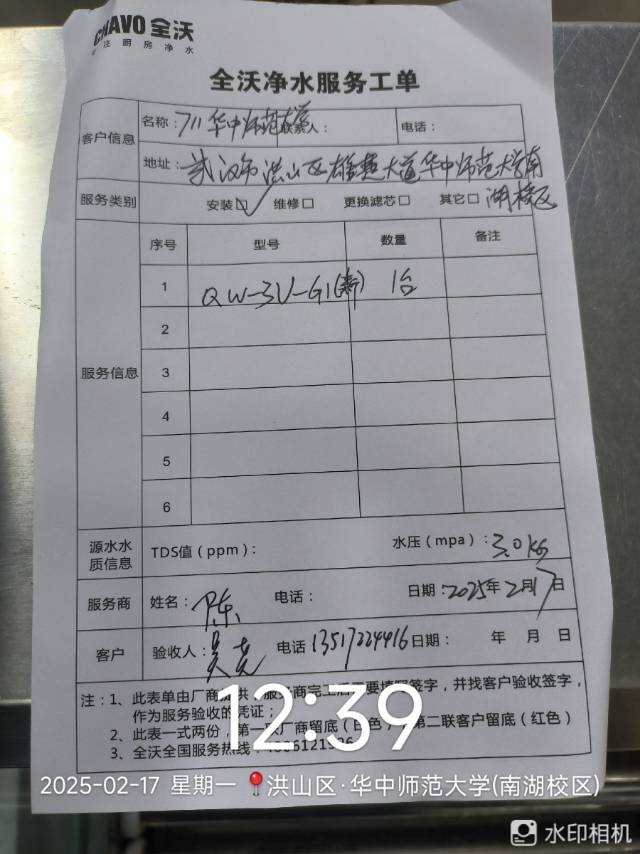 CHAVO 全沃
专注厨房净水
全沃净水服务工单
客户信息
名称：711华中师范大学 联系人： 电话：
地址：武汉市洪山区雄楚大道华中师范大学南湖校区
服务类别 安装☑ 维修□ 更换滤芯□ 其它□
服务信息
序号 型号 数量 备注
1 QW-3U-G1(新) 1台
2
3
4
5
6
源水水质信息 TDS值（ppm）： 水压（mpa）：3.0kg
服务商 姓名：陈 电话： 日期：2025年2月17日
客户 验收人：吴 电话 13517224416 日期： 年 月 日
注：1、此表单由厂商提供，服务商完工后需要填写签字，并找客户验收签字，
作为服务验收的凭证；
2、此表一式两份，第一联厂商留底（白色），第二联客户留底（红色）
3、全沃全国服务热线：
12:39
2025-02-17 星期一 洪山区·华中师范大学(南湖校区)
水印相机